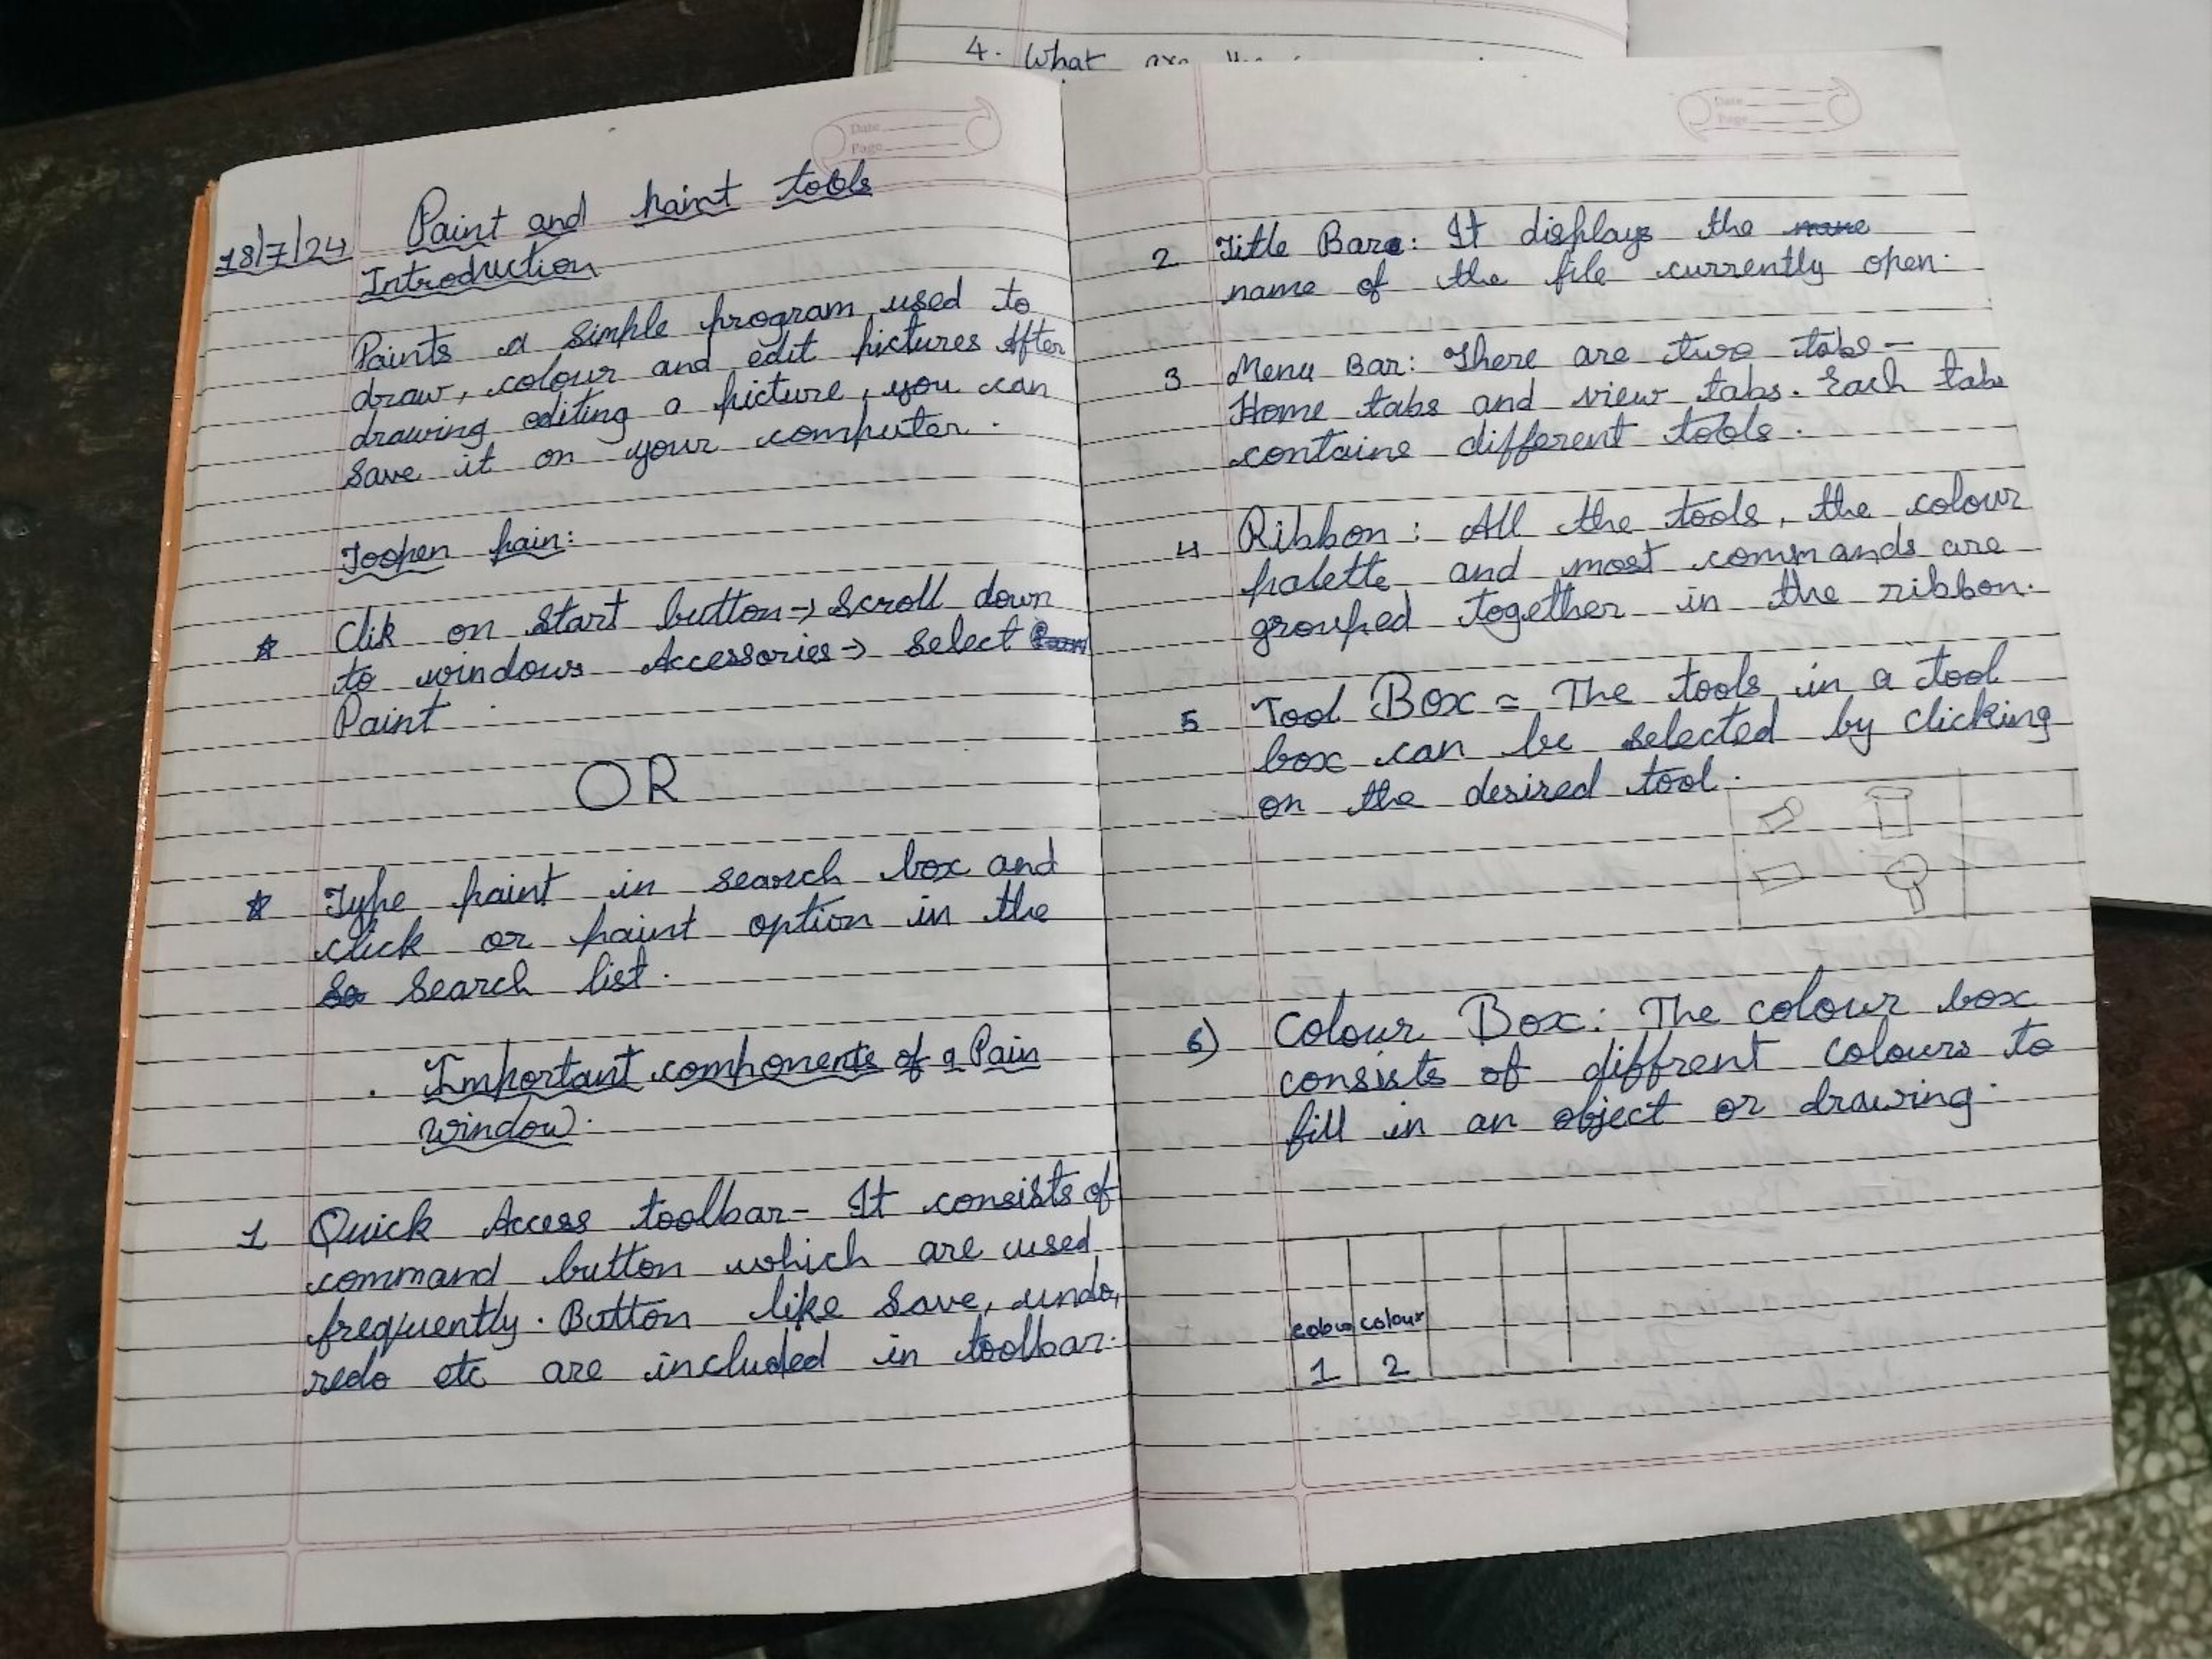 4. What are the
Date
Page
18/7/24 Paint and paint tools
Introduction
Paints a simple program used to
draw, colour and edit pictures After
drawing editing a picture, you can
save it on your computer.
Toopen pain:
☆ Clik on start button → scroll down
to windows Accessories → select
Paint
OR
☆ Type paint in search box and
click or paint option in the
se search list.
. Important components of a Pain
window.
1 Quick Access toolbar- It consists of
command button which are used
frequently. Button like save, undo,
redo etc are included in toolbar.
Date
Page
2 Title Bar: It displays the name
name of the file currently open.
3 Menu Bar: There are two tabs -
Home tabs and view tabs. Each tabs
contains different tools.
4 Ribbon: All the tools, the colour
palette and most commands are
grouped together in the ribbon.
5 Tool Box = The tools in a tool
box can be selected by clicking
on the desired tool.
6) Colour Box: The colour box
consists of diffrent colours to
fill in an object or drawing.
colour colour
1 2